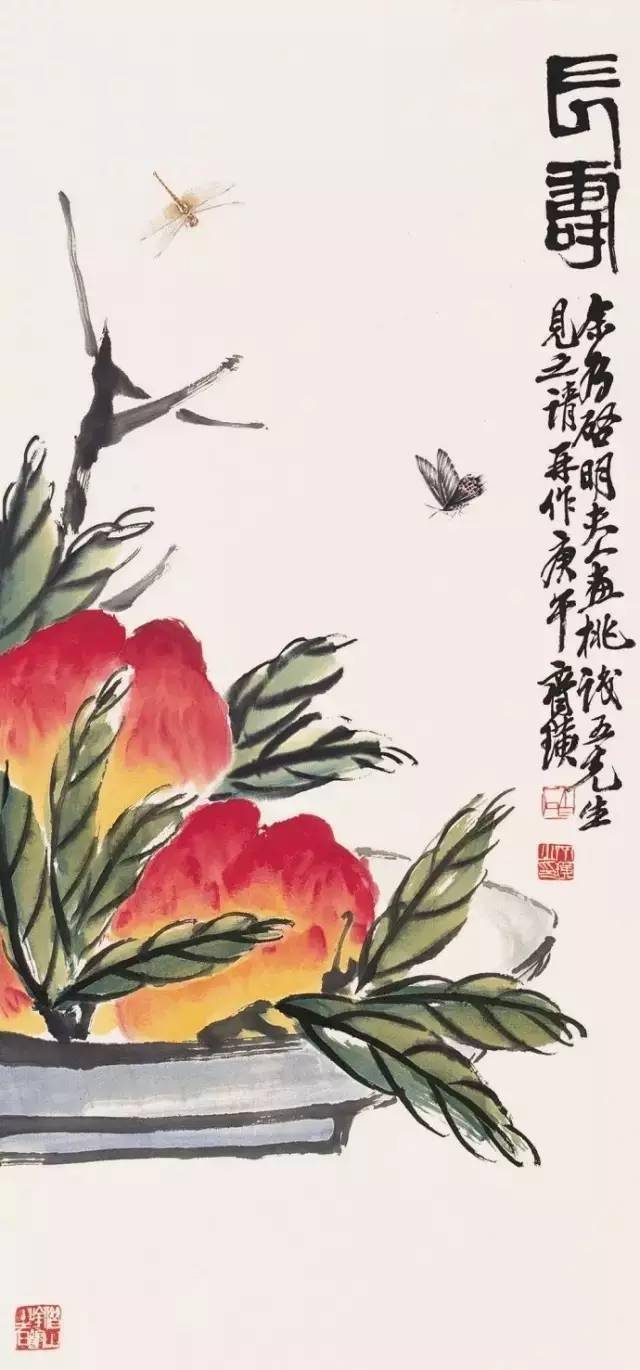 長壽
余为啓明夫人畫桃識五先生
見之請再作庚午齊璜